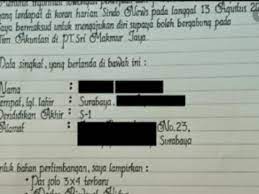 yang terdapat di koran harian Sindo News pada tanggal 13 Agustus
saya bermaksud untuk mengajukan diri supaya boleh bergabung pada
Tim Akuntasi di PT. Sri Makmur Jaya.
Data singkat, yang bertanda di bawah ini :
Nama :
Tempat, tgl. lahir : Surabaya,
Pendidikan Akhir : S-1
Alamat : No. 23,
Surabaya
Untuk bahan pertimbangan, saya lampirkan :
Pas foto 3x4 terbaru